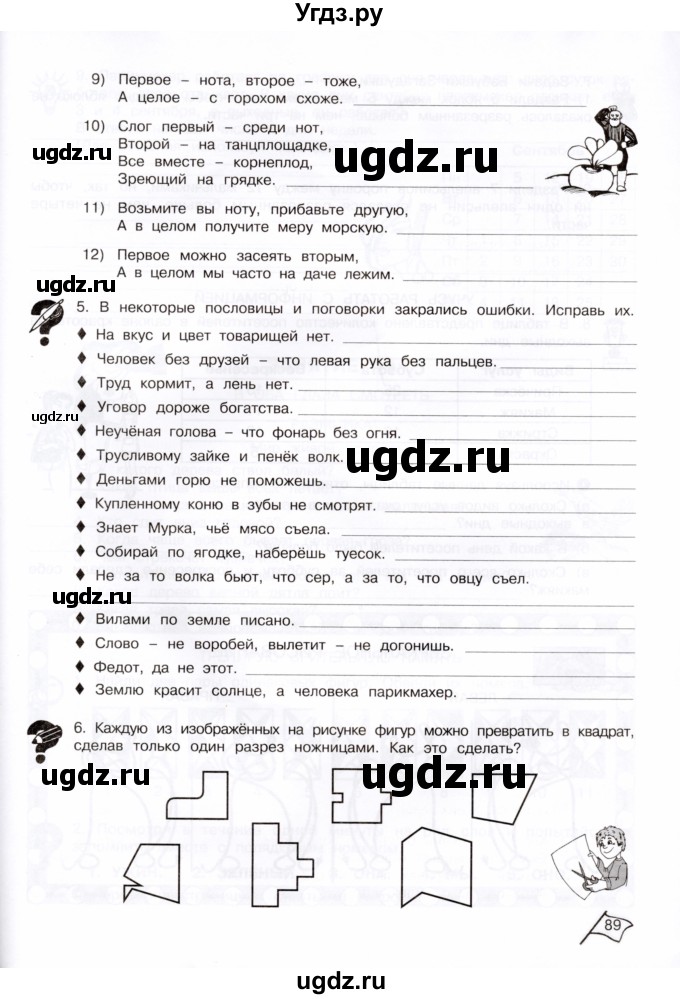 Угдз.ру
9) Первое – нота, второе – тоже,
А целое – с горохом схоже.
10) Слог первый – среди нот,
Второй – на танцплощадке,
Все вместе – корнеплод,
Зреющий на грядке.
ugdz.ru
ugdz.ru
11) Возьмите вы ноту, прибавьте другую,
А в целом получите меру морскую.
12) Первое можно засеять вторым,
А в целом мы часто на даче лежим.
ugdz.ru
ugdz.ru
5. В некоторые пословицы и поговорки закрались ошибки. Исправь их.
♦ На вкус и цвет товарищей нет.
♦ Человек без друзей – что левая рука без пальцев.
♦ Труд кормит, а лень нет.
♦ Уговор дороже богатства.
ugdz.ru
♦ Неучёная голова – что фонарь без огня.
♦ Трусливому зайке и пенёк волк.
ugdz.ru
♦ Деньгами горю не поможешь.
♦ Купленному коню в зубы не смотрят.
♦ Знает Мурка, чьё мясо съела.
♦ Собирай по ягодке, наберёшь туесок.
♦ Не за то волка бьют, что сер, а за то, что овцу съел.
ugdz.ru
♦ Вилами по земле писано.
♦ Слово – не воробей, вылетит – не догонишь.
ugdz.ru
♦ Федот, да не этот.
♦ Землю красит солнце, а человека парикмахер.
6. Каждую из изображённых на рисунке фигур можно превратить в квадрат,
сделав только один разрез ножницами. Как это сделать?
ugdz.ru
ugdz.ru
89
ugdz.ru